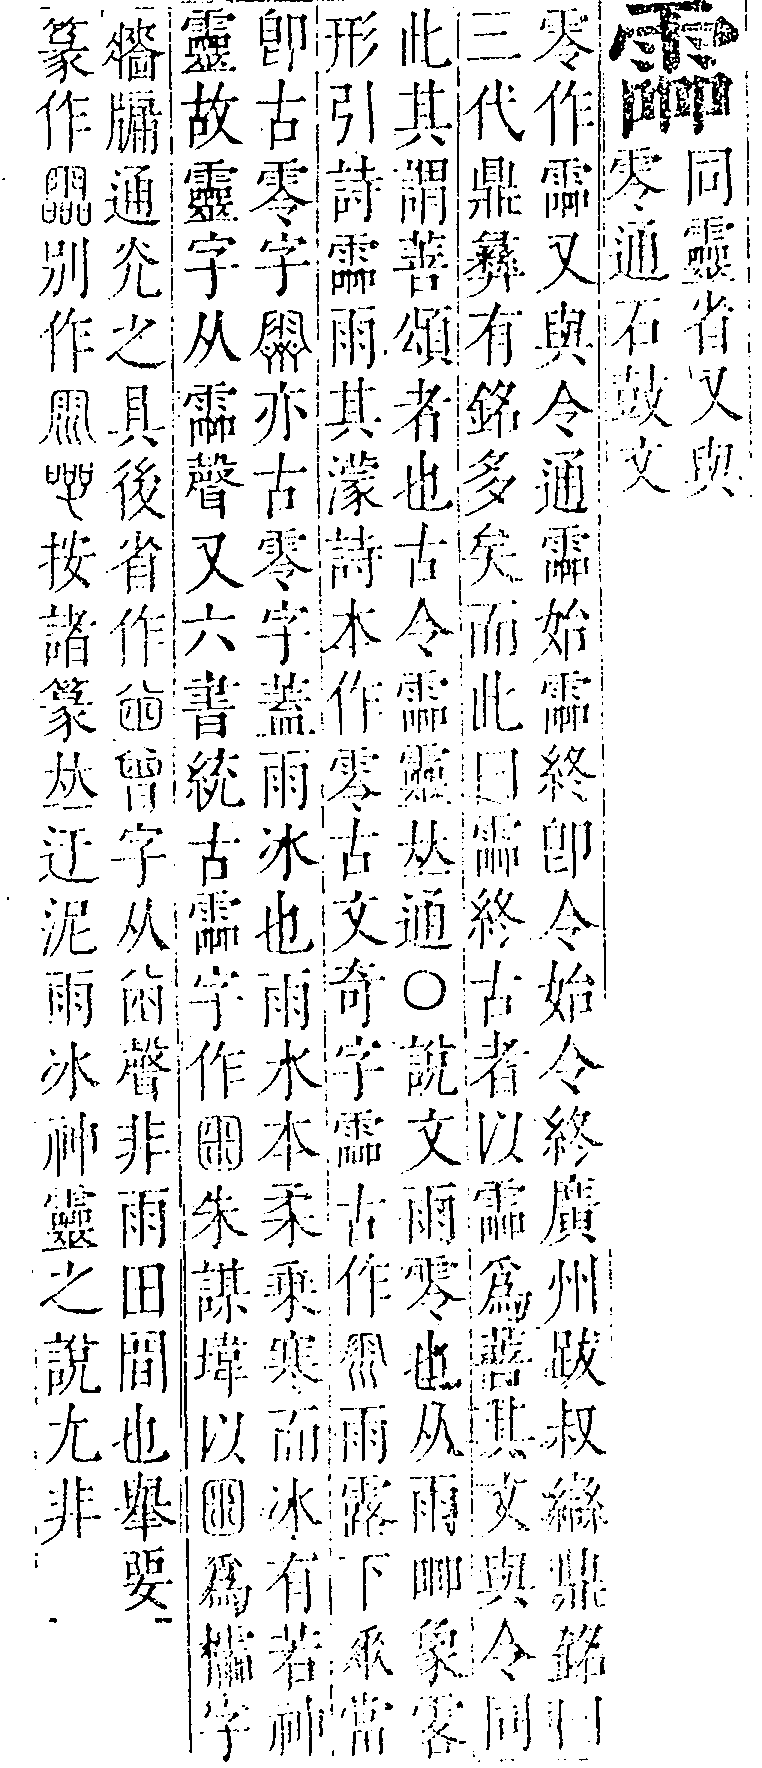 霝
同靈省又與
零通石鼓文
零作霝又與令通霝始霝終卽令始令終廣州跋叔鼎銘曰
三代鼎彝有銘多矣而此曰霝終古者以霝爲善其文與令同
此其謂善頌者也古令霝靈𠀤通○說文雨零也从雨𠱠象零
形引詩霝雨其濛詩本作零古文奇字霝古作雨露下承當
卽古零字亦古零字蓋雨冰也雨水本柔乘寒而冰有若神
靈故靈字从霝聲又六書統古霝字作朱謀㙔以爲櫺字
牆牖通光之具後省作曾字从囪聲非雨田間也舉要
篆作別作按諸篆𠀤迂泥雨冰神靈之說尢非